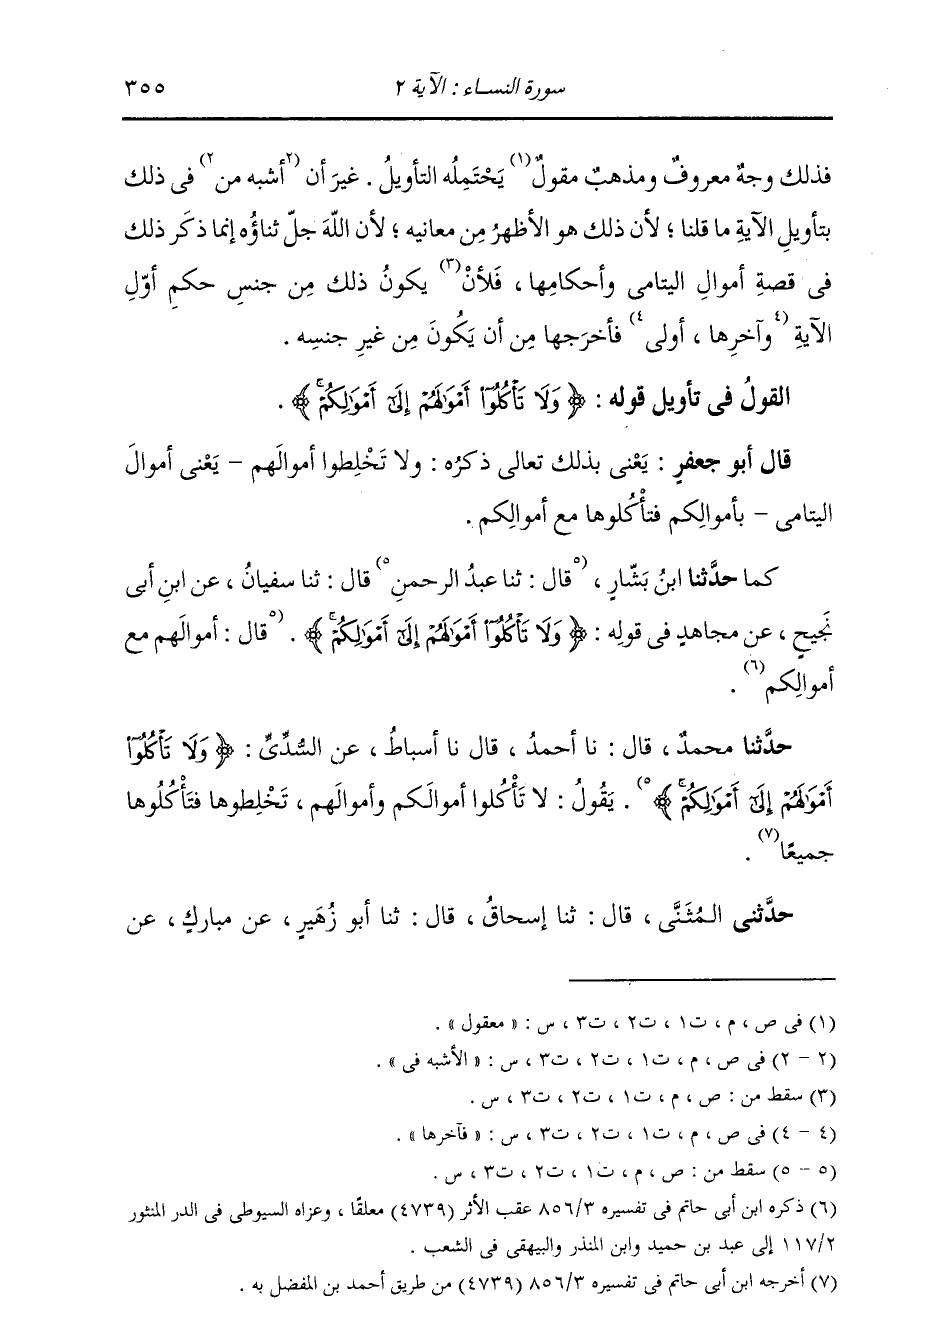 سورة النساء : الآية ٢ ٣٥٥
فذلك وجهٌ معروفٌ ومذهبٌ مقولٌ(١) يَحْتَمِلُه التأويلُ . غيرَ أن (٢أشبه من٢) فى ذلك
بتأويلِ الآيةِ ما قلنا ؛ لأن ذلك هو الأظهرُ مِن معانيه ؛ لأن اللَّهَ جلّ ثناؤُه إنما ذكَر ذلك
فى قصةِ أموالِ اليتامى وأحكامِها ، فَلأنْ(٣) يكونُ ذلك مِن جنسِ حكمِ أوّلِ
الآيةِ (٤وآخرِها ، أولى٤) فأخرَجها مِن أن يَكُونَ مِن غيرِ جنسِه .
القولُ فى تأويل قوله : ﴿ وَلَا تَأْكُلُوٓا۟ أَمْوَٰلَهُمْ إِلَىٰٓ أَمْوَٰلِكُمْ ۚ ﴾ .
قال أبو جعفرٍ : يَعْنى بذلك تعالى ذكرُه : ولا تَخْلِطوا أموالَهم – يَعْنى أموالَ
اليتامى – بأموالِكم فتأْكُلوها مع أموالِكم .
كما حدَّثنا ابنُ بَشّارٍ ، (٥قال : ثنا عبدُ الرحمنِ٥) قال : ثنا سفيانُ ، عن ابنِ أبى
نَجيحٍ ، عن مجاهدٍ فى قولِه : ﴿ وَلَا تَأْكُلُوٓا۟ أَمْوَٰلَهُمْ إِلَىٰٓ أَمْوَٰلِكُمْ ۚ ﴾ . (٥قال : أموالَهم مع
أموالِكم(٦) .
حدَّثنا محمدٌ ، قال : نا أحمدُ ، قال نا أسباطُ ، عن السُّدِّىِّ : ﴿ وَلَا تَأْكُلُوٓا۟
أَمْوَٰلَهُمْ إِلَىٰٓ أَمْوَٰلِكُمْ ۚ ﴾٥) . يَقُولُ : لا تَأْكُلوا أموالَكم وأموالَهم ، تَخْلِطوها فتَأْكُلُوها
جميعًا(٧) .
حدَّثنى المُثَنَّى ، قال : ثنا إسحاقُ ، قال : ثنا أبو زُهَيرٍ ، عن مباركٍ ، عن
(١) فى ص ، م ، ت١ ، ت٢ ، ت٣ ، س : « معقول » .
(٢ – ٢) فى ص ، م ، ت١ ، ت٢ ، ت٣ ، س : « الأشبه فى » .
(٣) سقط من : ص ، م ، ت١ ، ت٢ ، ت٣ ، س .
(٤ – ٤) فى ص ، م ، ت١ ، ت٢ ، ت٣ ، س : « فآخرها » .
(٥ – ٥) سقط من : ص ، م ، ت١ ، ت٢ ، ت٣ ، س .
(٦) ذكره ابن أبى حاتم فى تفسيره ٨٥٦/٣ عقب الأثر (٤٧٣٩) معلقًا ، وعزاه السيوطى فى الدر المنثور
١١٧/٢ إلى عبد بن حميد وابن المنذر والبيهقى فى الشعب .
(٧) أخرجه ابن أبى حاتم فى تفسيره ٨٥٦/٣ (٤٧٣٩) من طريق أحمد بن المفضل به .